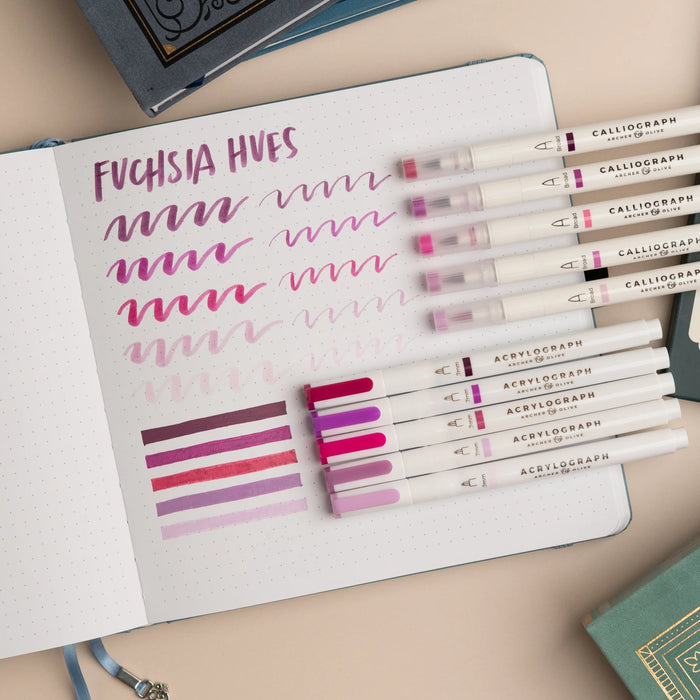 FUCHSIA HUES
CALLIOGRAPH
ARCHER & OLIVE
Broad
CALLIOGRAPH
ARCHER & OLIVE
Broad
CALLIOGRAPH
ARCHER & OLIVE
Broad
CALLIOGRAPH
ARCHER & OLIVE
Broad
CALLIOGRAPH
ARCHER & OLIVE
Broad
ACRYLOGRAPH
ARCHER & OLIVE
.7mm
ACRYLOGRAPH
ARCHER & OLIVE
.7mm
ACRYLOGRAPH
ARCHER & OLIVE
.7mm
ACRYLOGRAPH
ARCHER & OLIVE
.7mm
ACRYLOGRAPH
ARCHER & OLIVE
.7mm